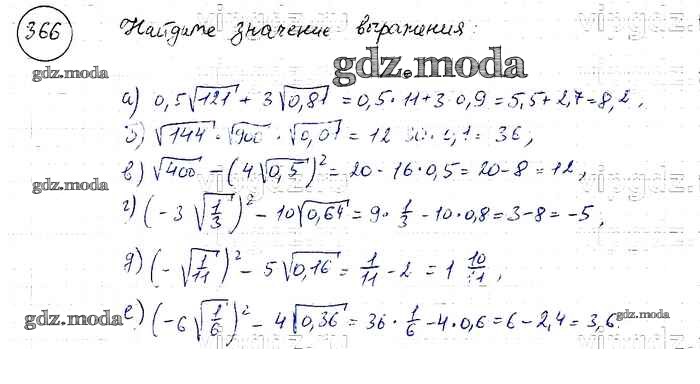 366 Найдите значение выражения:
gdz.moda
gdz.moda
а) 0,5√121 + 3√0,81 = 0,5·11+3·0,9 = 5,5+2,7=8,2,
б) √144 · √900 · √0,01 = 12·30·0,1 = 36,
в) √400 - (4√0,5)² = 20 - 16·0,5 = 20-8 = 12,
gdz.moda
г) (-3√1/3)² - 10√0,64 = 9·1/3 - 10·0,8 = 3-8 = -5,
д) (-√1/11)² - 5√0,16 = 1/11 - 2 = 1 10/11,
е) (-6√1/6)² - 4√0,36 = 36·1/6 - 4·0,6 = 6-2,4 = 3,6.
gdz.moda
gdz.moda